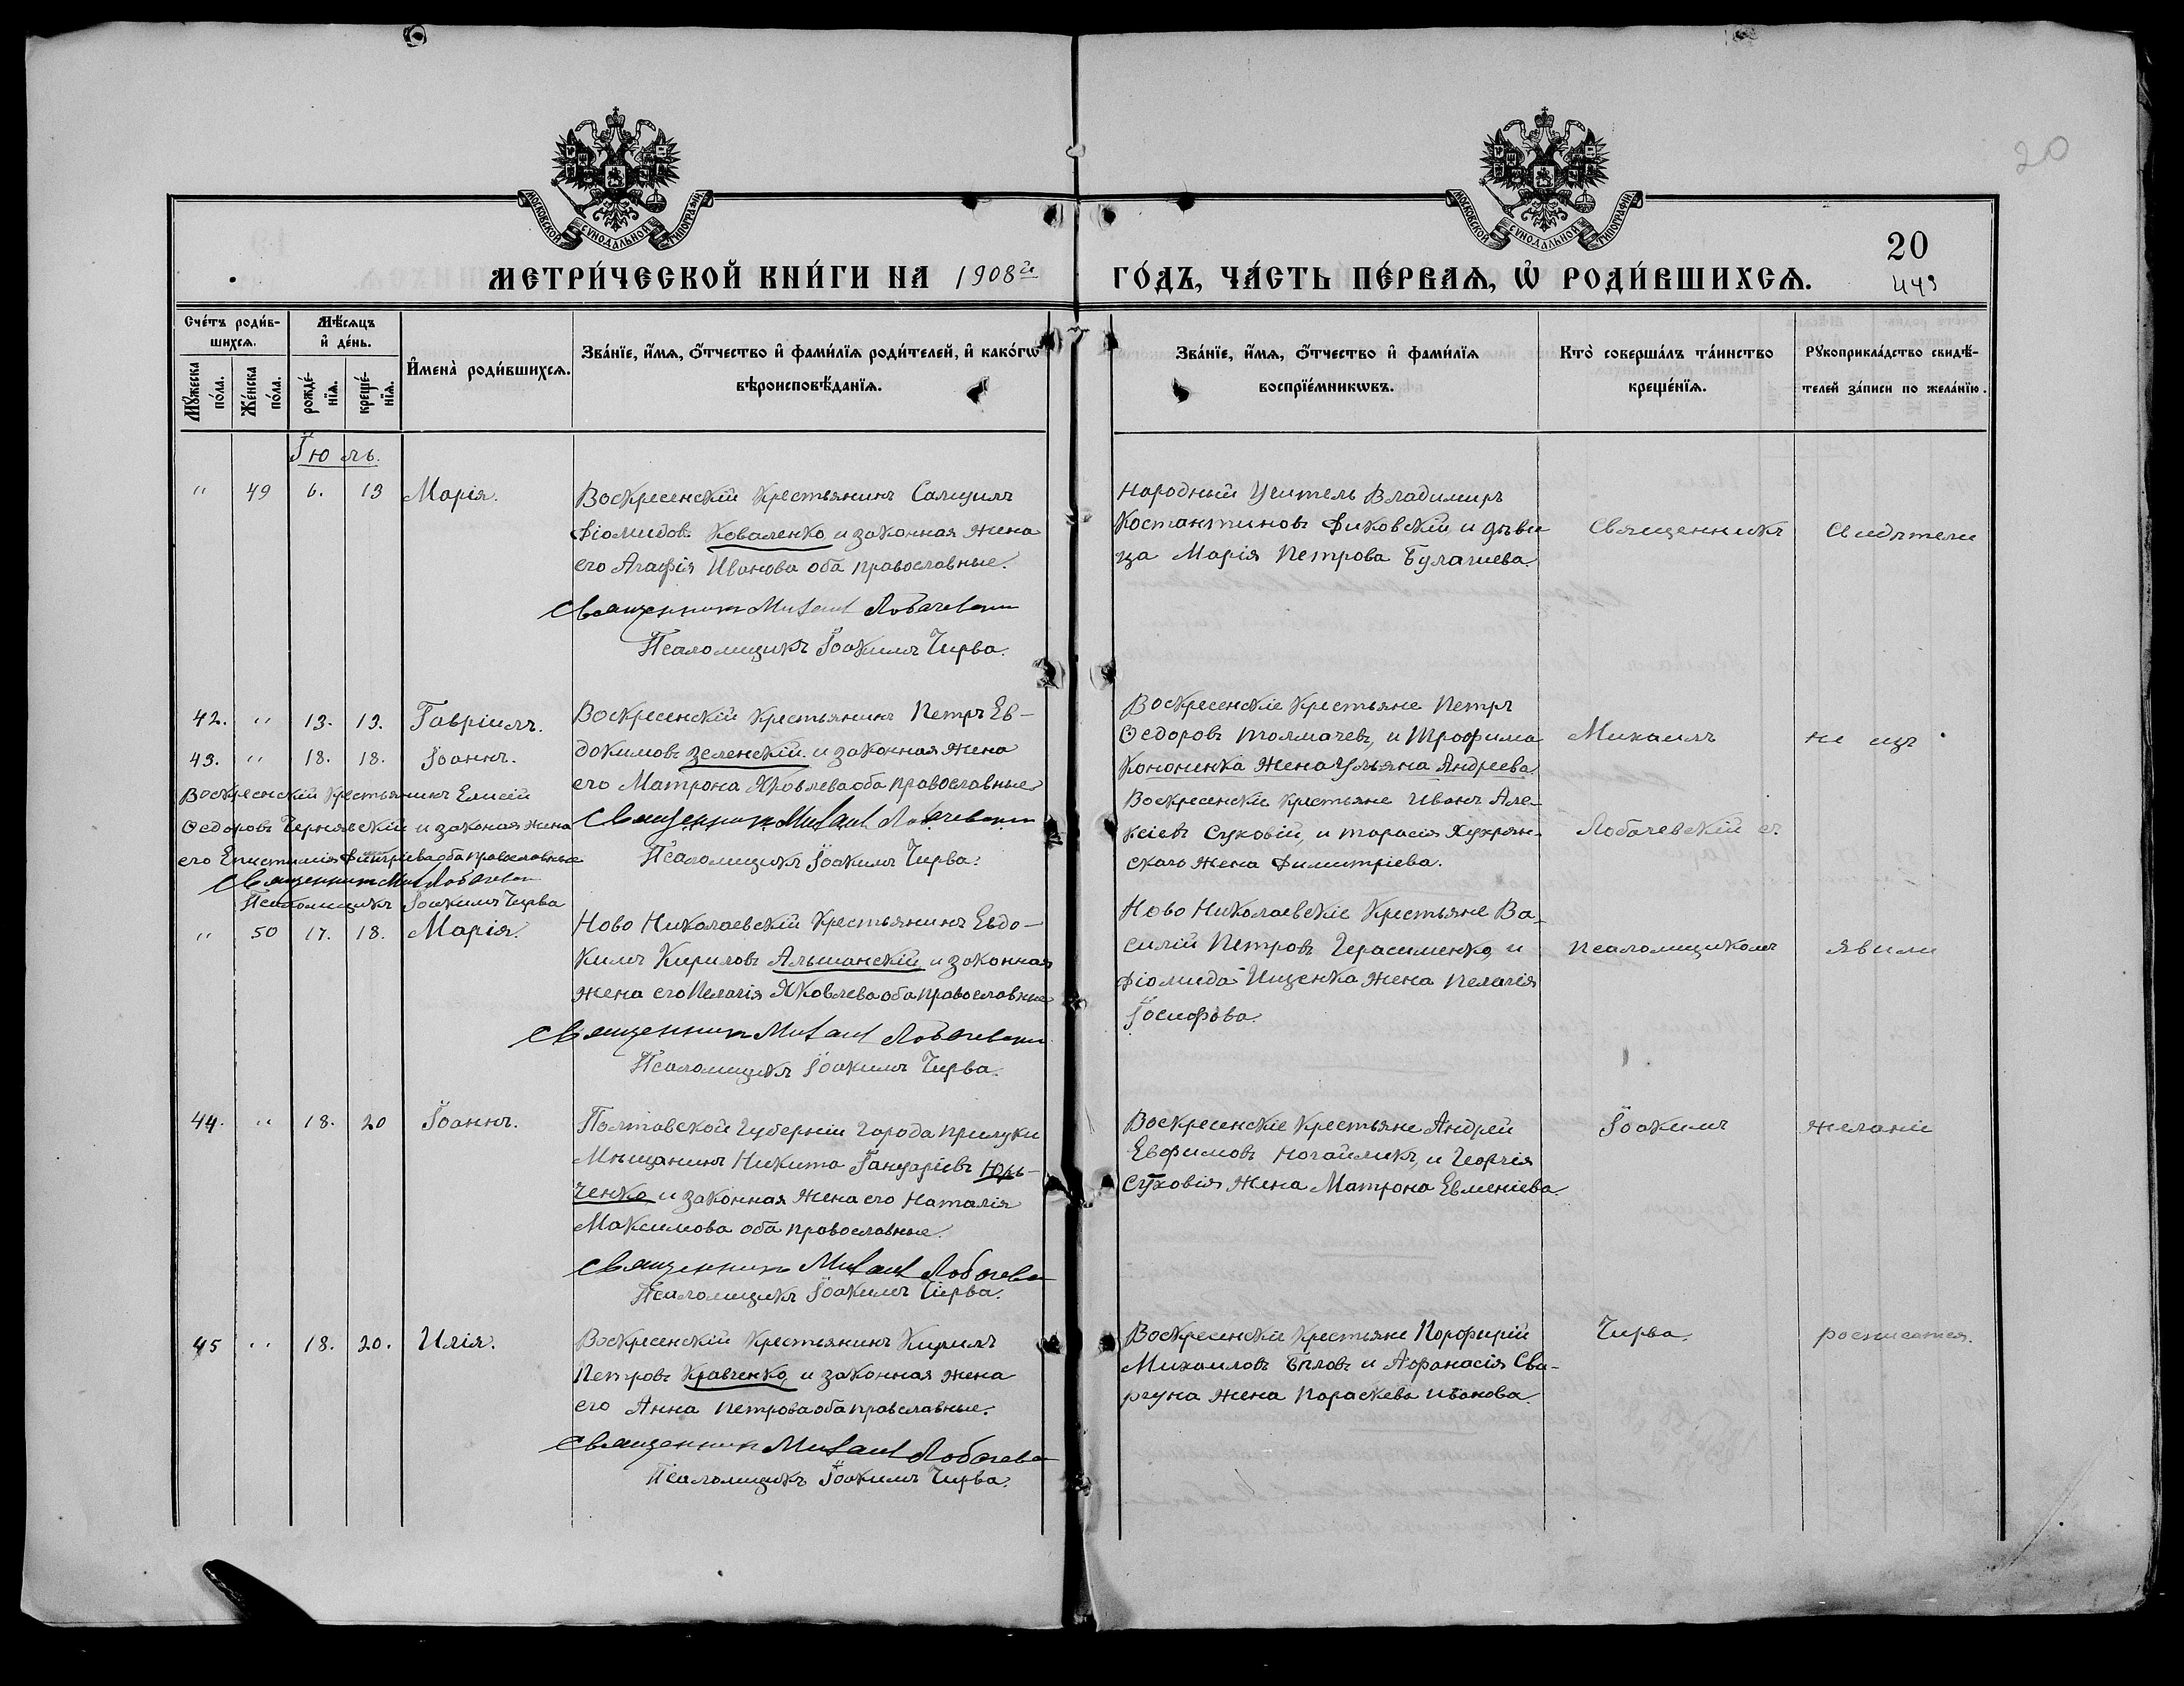 20
МОСКОВСКОЙ СУНОДАЛЬНОЙ ТИПОГРАФІИ.
МОСКОВСКОЙ СУНОДАЛЬНОЙ ТИПОГРАФІИ.
20
МЕТРИ́ЧЕСКОЙ КНИ́ГИ НА 1908й
ГО́ДЪ, ЧА́СТЬ ПЕ́РВАѦ, Ѡ҆ РОДИ́ВШИХСѦ.
449
Сче́тъ роди́в-
шихсѧ.
Мѣ́сѧцъ
и҆ де́нь.
Мꙋ́жеска по́ла.
Же́нска по́ла.
рожде́-нїѧ.
креще́-нїѧ.
И҆мена̀ роди́вшихсѧ.
Зва́нїе, и҆́мѧ, ѻ҆́тчество и҆ фами́лїѧ роди́телей, и҆ како́гѡ
вѣроисповѣ́данїѧ.
Зва́нїе, и҆́мѧ, ѻ҆́тчество и҆ фами́лїѧ
воспрїе́мникѡвъ.
Кто̀ соверша́лъ та́инство
креще́нїѧ.
Рꙋкоприкла́дство свидѣ́-
телей за́писи по жела́нїю.
Іюль.
" 49 6. 13 Марія.
Воскресенскій крестьянинъ Самуилъ
Діомидовъ Коваленко, и законная жена
его Агафія Иванова оба православные.
Священникъ Михаилъ Лобачевскій
Псаломщикъ Іоакимъ Чирва.
Народный учитель Владимиръ
Костантиновъ Фиковскій, и дѣви
ца Марія Петрова Булагиева.
Священникъ
Свидѣтели
42. " 13. 13. Гавріилъ.
Воскресенскій крестьянинъ Петръ Ев-
докимовъ Зеленскій и законная жена
его Матрона Яковлева оба православные
Священникъ Михаилъ Лобачевскій
Псаломщикъ Іоакимъ Чирва.
Воскресенскіе крестьяне Петръ
Ѳедоровъ Толмачевъ, и Трофима
Кононенка жена Ульяна Андреева.
Михаилъ
не изъ
43. " 18. 18. Іоаннъ.
Воскресенскій крестьянинъ Елисей
Ѳедоровъ Чернявскій и законая жена
его Епистимія Димитріева оба православные
Священникъ Мих Лобачевск
Псаломщикъ Іоакимъ Чирва
Воскресенскіе крестьяне Иванъ Але-
ксіевъ Суховій, и Тарасія
скаго жена Димитріева.
Лобачевскій съ
" 50 17. 18. Марія.
Ново Николаевскій крестьянинъ Евдо-
кимъ Кириловъ Альшанскій и законная
жена его Пелагія Яковлева оба православные
Священникъ Михаилъ Лобачевскій
Псаломщикъ Іоакимъ Чирва.
Ново Николаевскіе крестьяне Ва-
силій Петровъ Герасименко, и
Діомида Ищенка жена Пелагія
Іосифова.
псаломщикомъ
явили
44. " 18. 20 Іоаннъ.
Полтавской Губерніи города Прилуки
Мѣщанинъ Никита Іануаріевъ Юрь-
ченко и законная жена его Наталія
Максимова оба православные.
Священникъ Михаилъ Лобачевск
Псаломщикъ Іоакимъ Чирва.
Воскресенскіе крестьяне Андрей
Евфимовъ Ногайликъ, и Георгія
Суховія жена Матрона Евменіева.
Іоакимъ
желаніе
45 " 18. 20. Илія.
Воскресенскій крестьянинъ Кирилъ
Петровъ Кравченко, и законная жена
его Анна Петрова оба православные.
Священникъ Михаилъ Лобачевск
Псаломщикъ Іоакимъ Чирва.
Воскресенскіе крестьяне Порфирій
Михаиловъ Бѣловъ и Афанасія Сва-
ргуна жена Параскева Иванова.
Чирва.
росписатся.